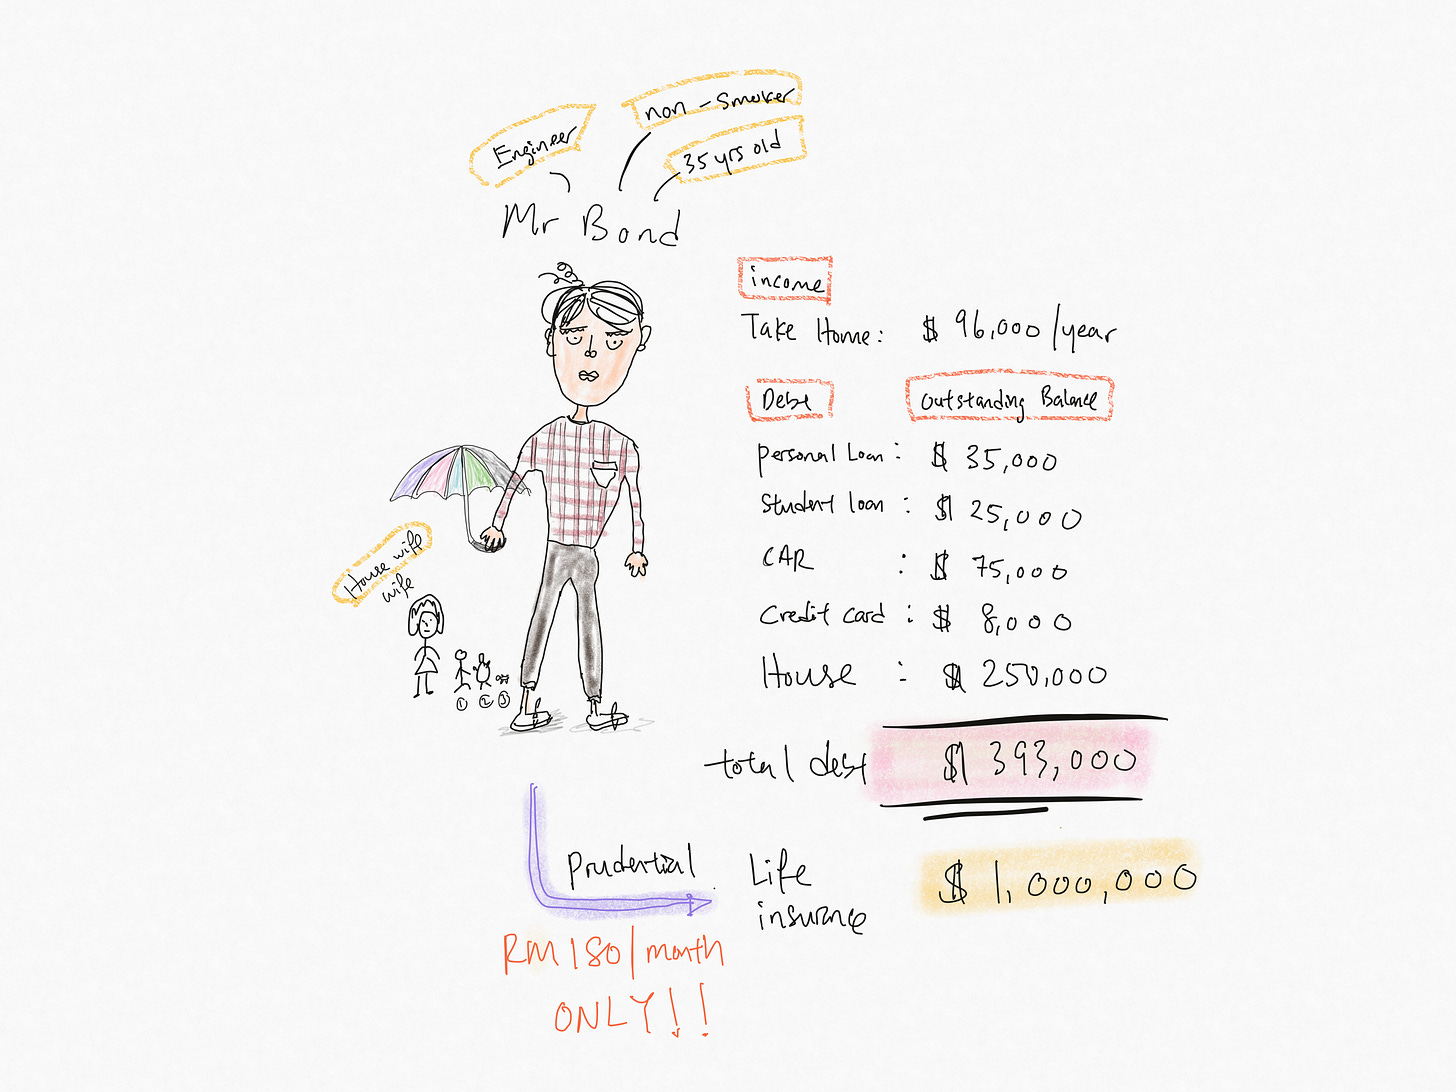 non - Smoker
Engineer
35 yrs old
Mr Bond
income
Take Home: $ 96,000/year
Debt Outstanding Balance
personal Loan: $ 35,000
Student loan : $ 25,000
CAR : $ 75,000
Credit card : $ 8,000
House : $ 250,000
total debt $ 393,000
House wiff
wife
1 2 3
Prudential
Life
insurance
$ 1,000,000
RM 180/month
ONLY!!